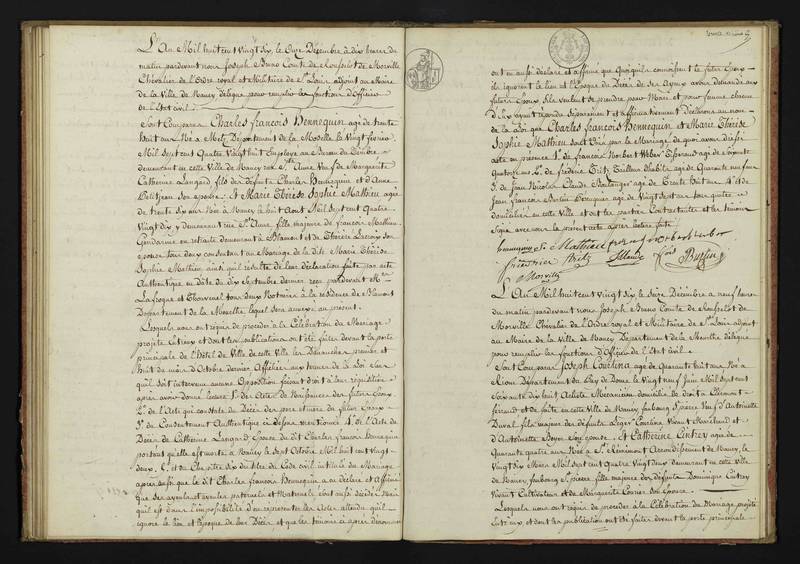 L'An Mil huit cent vingt six, le Onze Décembre à dix heures du
matin pardevant nous Joseph Bruno Comte de
Chevalier de l'Ordre royal et Militaire de St Louis adjoint au Maire
de la Ville de Nancy délégué pour remplir les fonctions d'Officier
de l'Etat civil.
Sont Comparus Charles François Hennequin agé de trente
huit ans Né à Metz Département de la Moselle le Vingt février
Mil Sept cent Quatre Vingt huit Employé au Bureau
demeurant en cette Ville de Nancy rue Ste Anne Veuf de Marguerite
Catherine Langard fils des défunts Charles Hennequin et d'Anne
Petitjean son épouse. Et Marie Thérèse Sophie Mathieu agée
de trente Six ans Née à Nancy le huit Aout Mil Sept cent Quatre
Vingt dix y demeurant rue Ste Anne, fille majeure de françois Mathieu
Gendarme en retraite demeurant à Blamont et de Thérèse Lacroix son
épouse tous deux consentant au Mariage de la dite Marie Thérèse
Sophie Mathieu ainsi qu'il résulte de leur déclaration faite par acte
Authentique en date du dix Septembre dernier reçu pardevant Mes
Lafrogne et Thouvenel tous deux Notaires à la résidence de Blamont
Département de la Meurthe lequel sera annexé au présent.
Lesquels nous ont requis de procéder à la Célébration du Mariage
projeté entr'eux et dont les publications ont été faites devant la porte
principale de l'Hôtel de Ville de cette Ville les Dimanches premier et
huit du mois d'Octobre dernier Affichées aux termes de la Loi sans
qu'il soit intervenu aucune Opposition faisant droit à leur réquisition
après avoir donné lecture 1° des Actes de Naissances des futurs Epoux
2° de l'Acte qui constate le Décès des père et mère du futur Epoux
3° du Consentement Authentique ci dessus mentionné 4° de l'Acte de
Décès de Catherine Langard Epouse du dit Charles françois Hennequin
portant qu'elle est morte à Nancy le Sept Octobre Mil huit cent vingt
deux, 5° et du Chapitre six du titre du Code civil intitulé du Mariage
après aussi que le dit Charles françois Hennequin a eu déclaré et Affirmé
que ses ayeuls et ayeules paternels et Maternels sont aussi décédés Mais
qu'il est dans l'impossibilité d'en représenter les Actes attendu qu'il
ignore le lieu et l'époque de leur Décès, et que les témoins ci après dénommés
ont eu aussi déclaré et affirmé que Quoiqu'ils connoissent le futur Epoux
ils ignorent le lieu et l'époque du Décès de ses Ayeux avons demandé aux
futurs Epoux s'ils veulent se prendre pour Mari et pour femme chacun
d'Eux ayant répondu séparément et affirmativement Déclarons au nom
de la Loi que Charles François Hennequin et Marie Thérèse
Sophie Mathieu sont Unis par le Mariage de quoi avons dressé
acte en présence 1° de françois Norbert Weber agé de Soixante
Quatorze ans 2° de frédéric Tailleur d'habits agé de Quarante neuf ans
3° de Jean Nicolas Claude Boulanger agé de Trente huit ans 4° et de
Jean françois agé de Vingt sept ans tous quatre
domiciliés en cette Ville et ont les parties Contractantes et les témoins
signé avec nous le présent acte après lecture faite
hennequin S Mathieu
L'An Mil huit cent vingt six le Seize Décembre a neuf heures
du matin pardevant nous Joseph Bruno Comte de
Chevalier de l'Ordre royal et Militaire de St Louis adjoint
au Maire de la Ville de Nancy Département de la Meurthe délégué
pour remplir les fonctions d'Officier de l'Etat civil
Sont Comparus Joseph Courtina agé de Quarante huit ans Né à
Riom Département du Puy de Dome le Vingt neuf Juin Mil Sept cent
soixante dix huit Artiste Mécanicien domicilié de droit à Clermont-
ferrand et de fait en cette Ville de Nancy faubourg St pierre Veuf d'Antoinette
Duval fils majeur des défunts Léger Courtina Vivant Marchand et
d'Antoinette Boyer son épouse. Et Catherine Cuntrey agée de
Quarante quatre ans Née à St Rémimont Arrondissement de Nancy, le
Vingt dix Mars Mil Sept cent Quatre Vingt deux demeurant en cette Ville
de Nancy faubourg St pierre, fille majeure des défunts Dominique Cuntrey
Vivant Cultivateur et de Marguerite son Epouse.
Lesquels nous ont requis de procéder à la Célébration du Mariage projeté
entr'eux et dont les publications ont été faites devant la porte principale